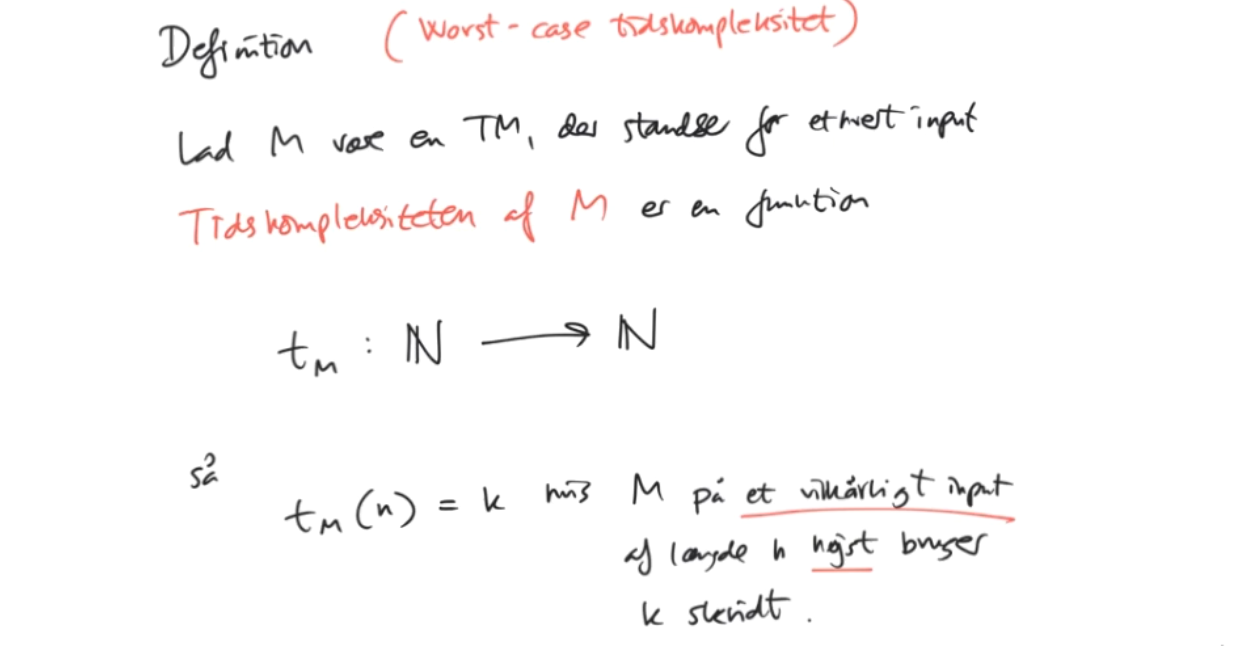 Definition (Worst-case tidskompleksitet)
Lad M være en TM, der standser for ethvert input
Tidskompleksiteten af M er en funktion
t_M : ℕ ⟶ ℕ
så
t_M(n) = k hvis M på et vilkårligt input
af længde n højst bruger
k skridt.